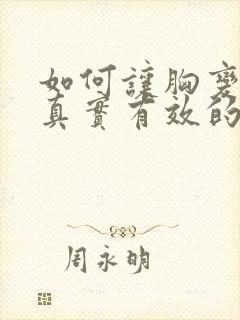 如何讓胸變
真實有效的
周永明